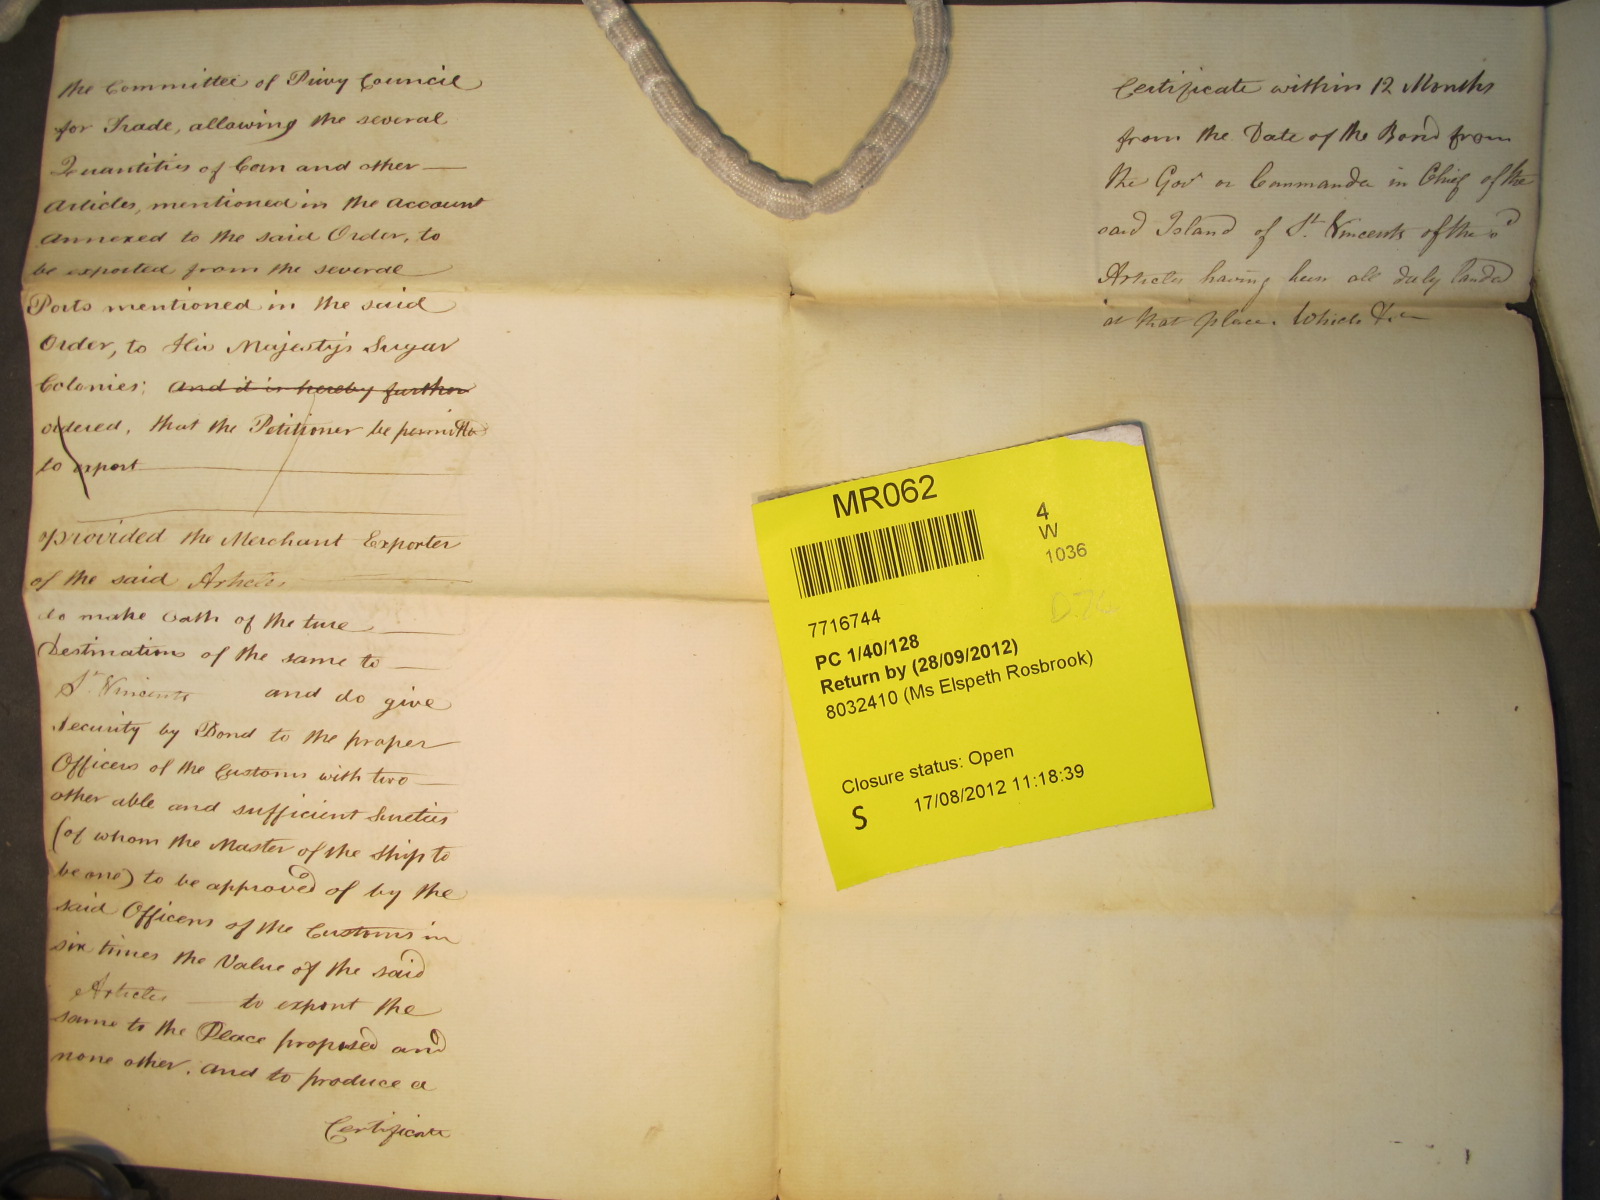 the Committee of Privy Council
for Trade, allowing the several
Quantities of Corn and other
Articles, mentioned in the Account
annexed to the said Order, to
be exported from the several
Ports mentioned in the said
Order, to His Majesty's Sugar
Colonies; And it is hereby further
ordered, that the Petitioner be permitted
to export
provided the Merchant Exporter
of the said Articles
do make Oath of the true
Destination of the same to
St. Vincents and do give
Security by Bond to the proper
Officers of the Customs with two
other able and sufficient Sureties
(of whom the Master of the Ship to
be one) to be approved of by the
said Officers of the Customs in
six times the Value of the said
Articles to export the
same to the Place proposed and
none other, and to produce a
Certificate
Certificate within 12 Months
from the Date of the Bond from
the Govr or Commander in Chief of the
said Island of St. Vincents of the sd
Articles having been all duly landed
at that place. Which &c
MR062
4
W
1036
7716744
PC 1/40/128
Return by (28/09/2012)
8032410 (Ms Elspeth Rosbrook)
Closure status: Open
S 17/08/2012 11:18:39